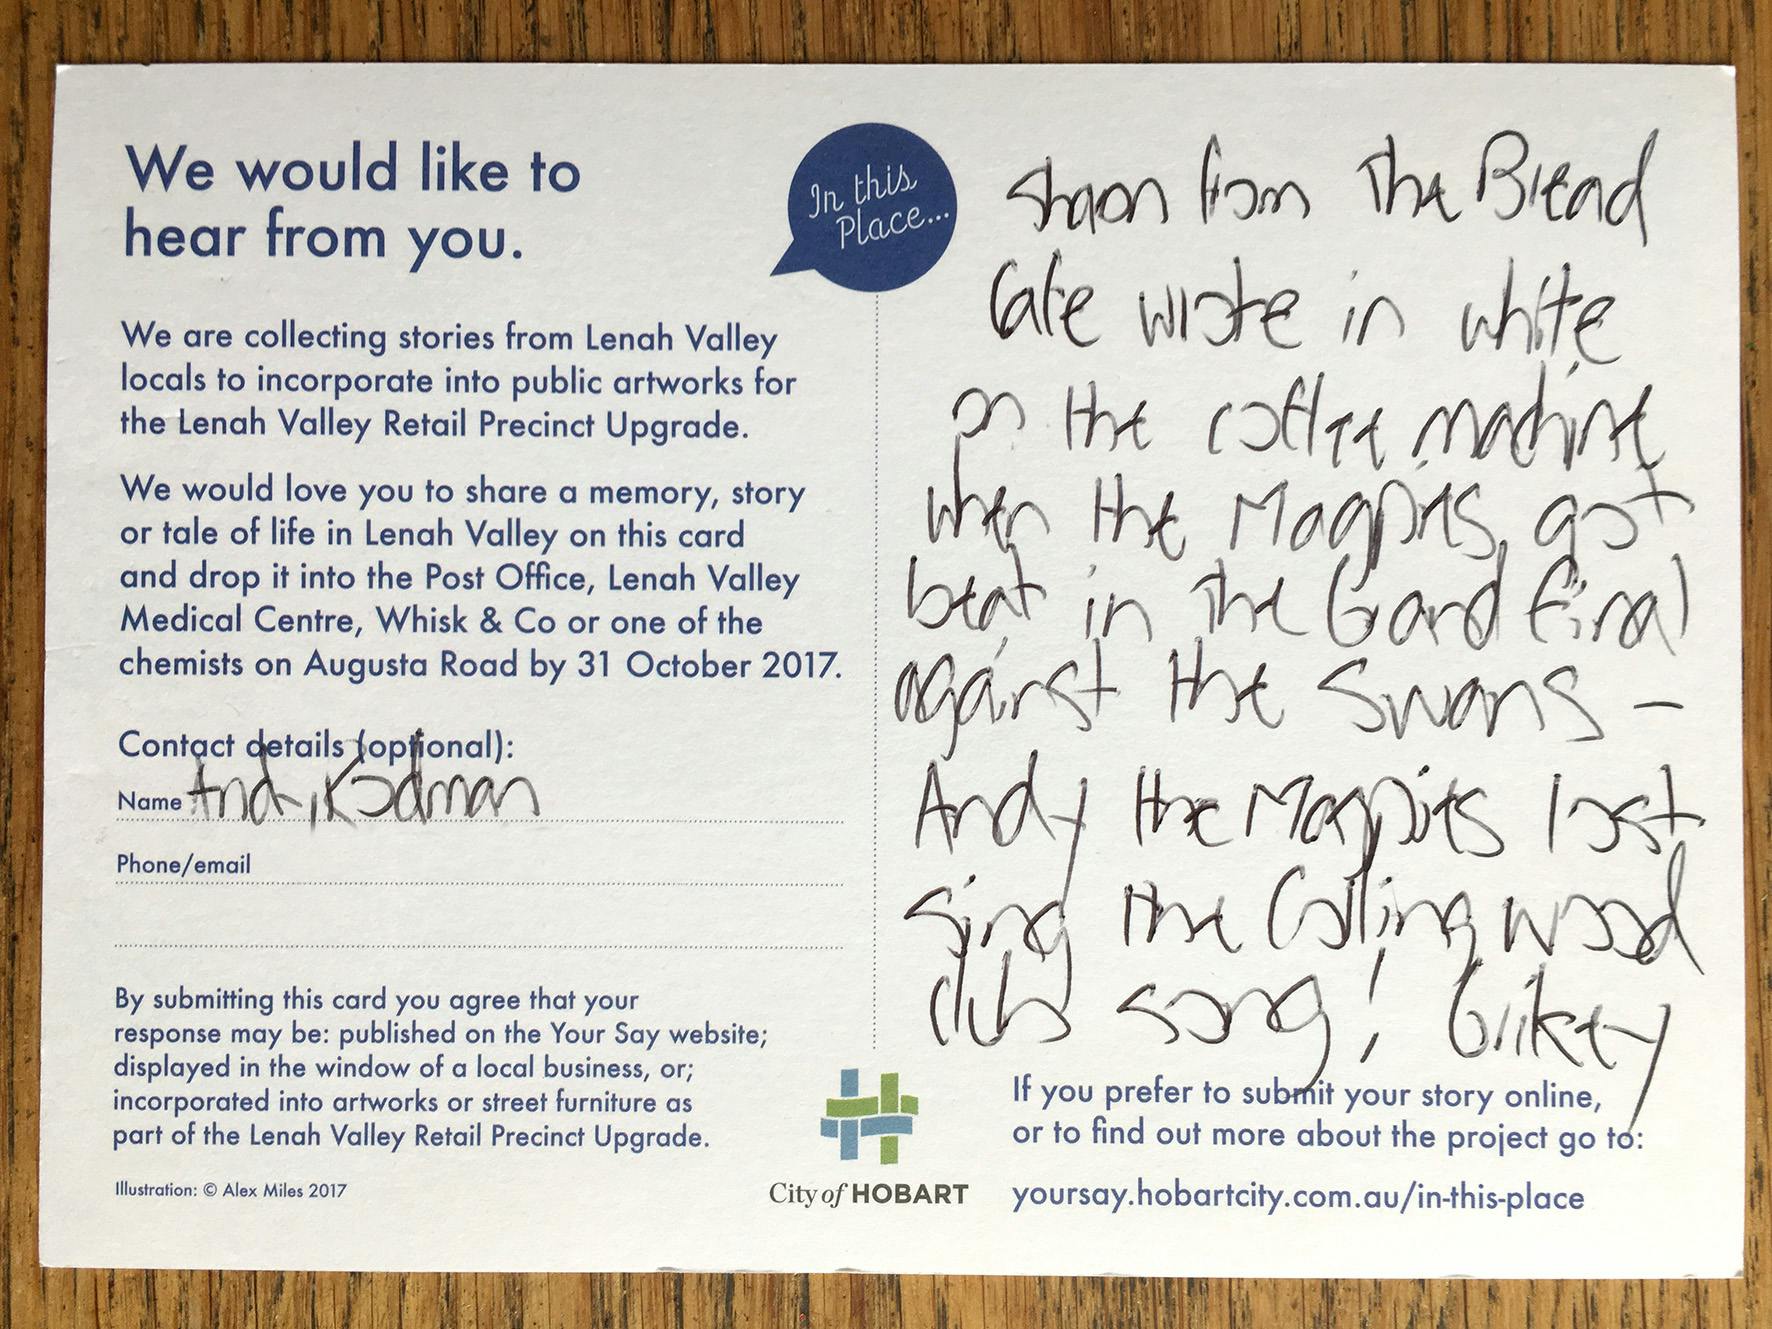 We would like to
hear from you.
In this
Place...
We are collecting stories from Lenah Valley
locals to incorporate into public artworks for
the Lenah Valley Retail Precinct Upgrade.
We would love you to share a memory, story
or tale of life in Lenah Valley on this card
and drop it into the Post Office, Lenah Valley
Medical Centre, Whisk & Co or one of the
chemists on Augusta Road by 31 October 2017.
Contact details (optional):
Name
Phone/email
By submitting this card you agree that your
response may be: published on the Your Say website;
displayed in the window of a local business, or;
incorporated into artworks or street furniture as
part of the Lenah Valley Retail Precinct Upgrade.
Illustration: © Alex Miles 2017
City of HOBART
from The Bread
Cafe wrote in white
on the coffee machine
when the Magpies got
beat in the Grand Final
against the Swans –
Andy the Magpies lost
sing the Collingwood
club song!
If you prefer to submit your story online,
or to find out more about the project go to:
yoursay.hobartcity.com.au/in-this-place